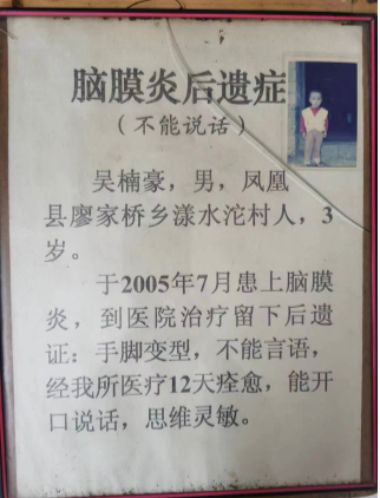 脑膜炎后遗症
（不能说话）
吴楠豪，男，凤凰
县廖家桥乡漾水沱村人，3
岁。
于2005年7月患上脑膜
炎，到医院治疗留下后遗
证：手脚变型，不能言语，
经我所医疗12天痊愈，能开
口说话，思维灵敏。